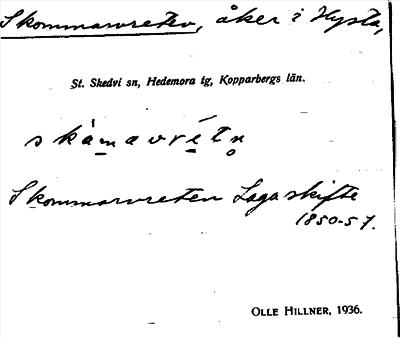 Skommarvreten, åker i Hysta,
St. Skedvi sn, Hedemora tg, Kopparbergs län.
skámavrétn̥
Skommarvreten Laga skifte
1850-57.
OLLE HILLNER, 1936.